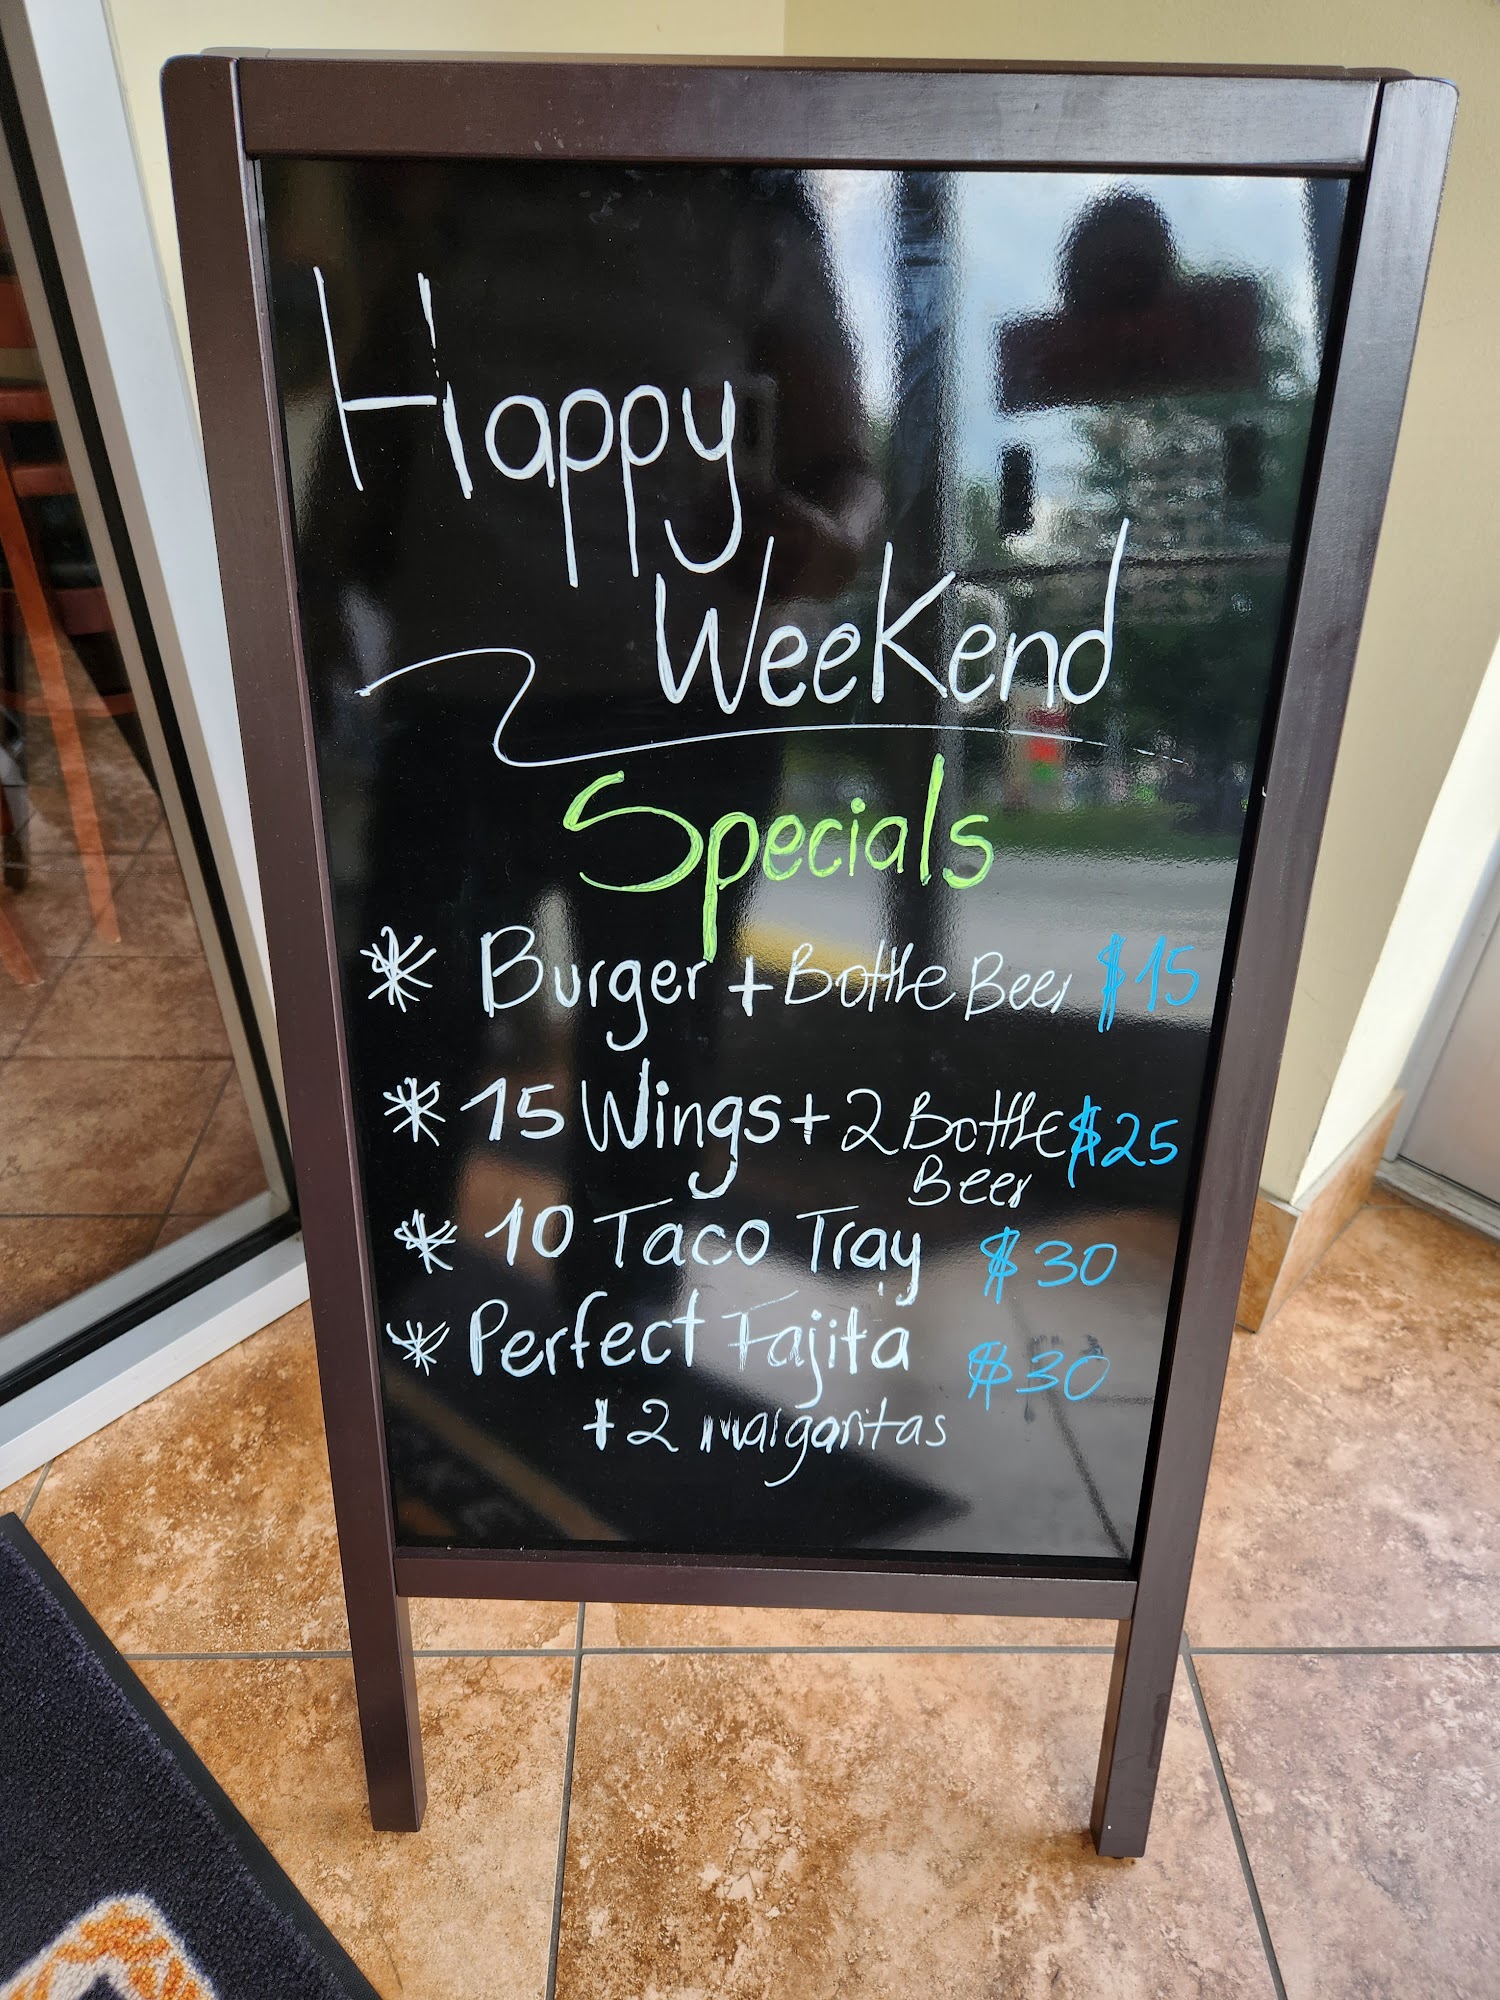 Happy
Weekend
Specials
* Burger + Bottle Beer $15
* 15 Wings + 2 Bottle $25
Beer
* 10 Taco Tray $30
* Perfect Fajita $30
+ 2 margaritas